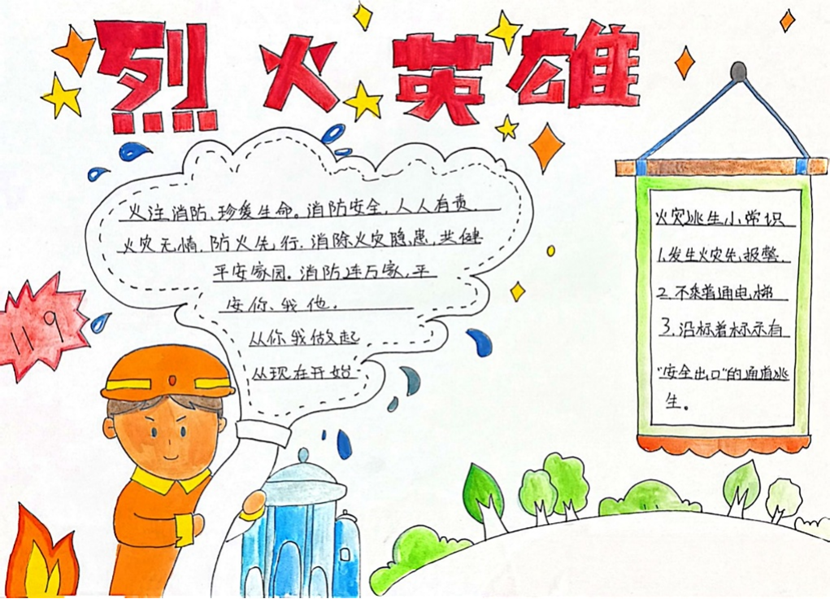 烈火英雄
火注消防,珍爱生命。消防安全,人人有责,
火灾无情,防火先行,消除火灾隐患,共健
平安家园。消防连万家,平
安你、我他,
从你我做起
从现在开始
119
火灾逃生小常识
1.发生火灾先报警,
2.不乘普通电梯
3.沿标着标示有
"安全出口"的通道逃
生。